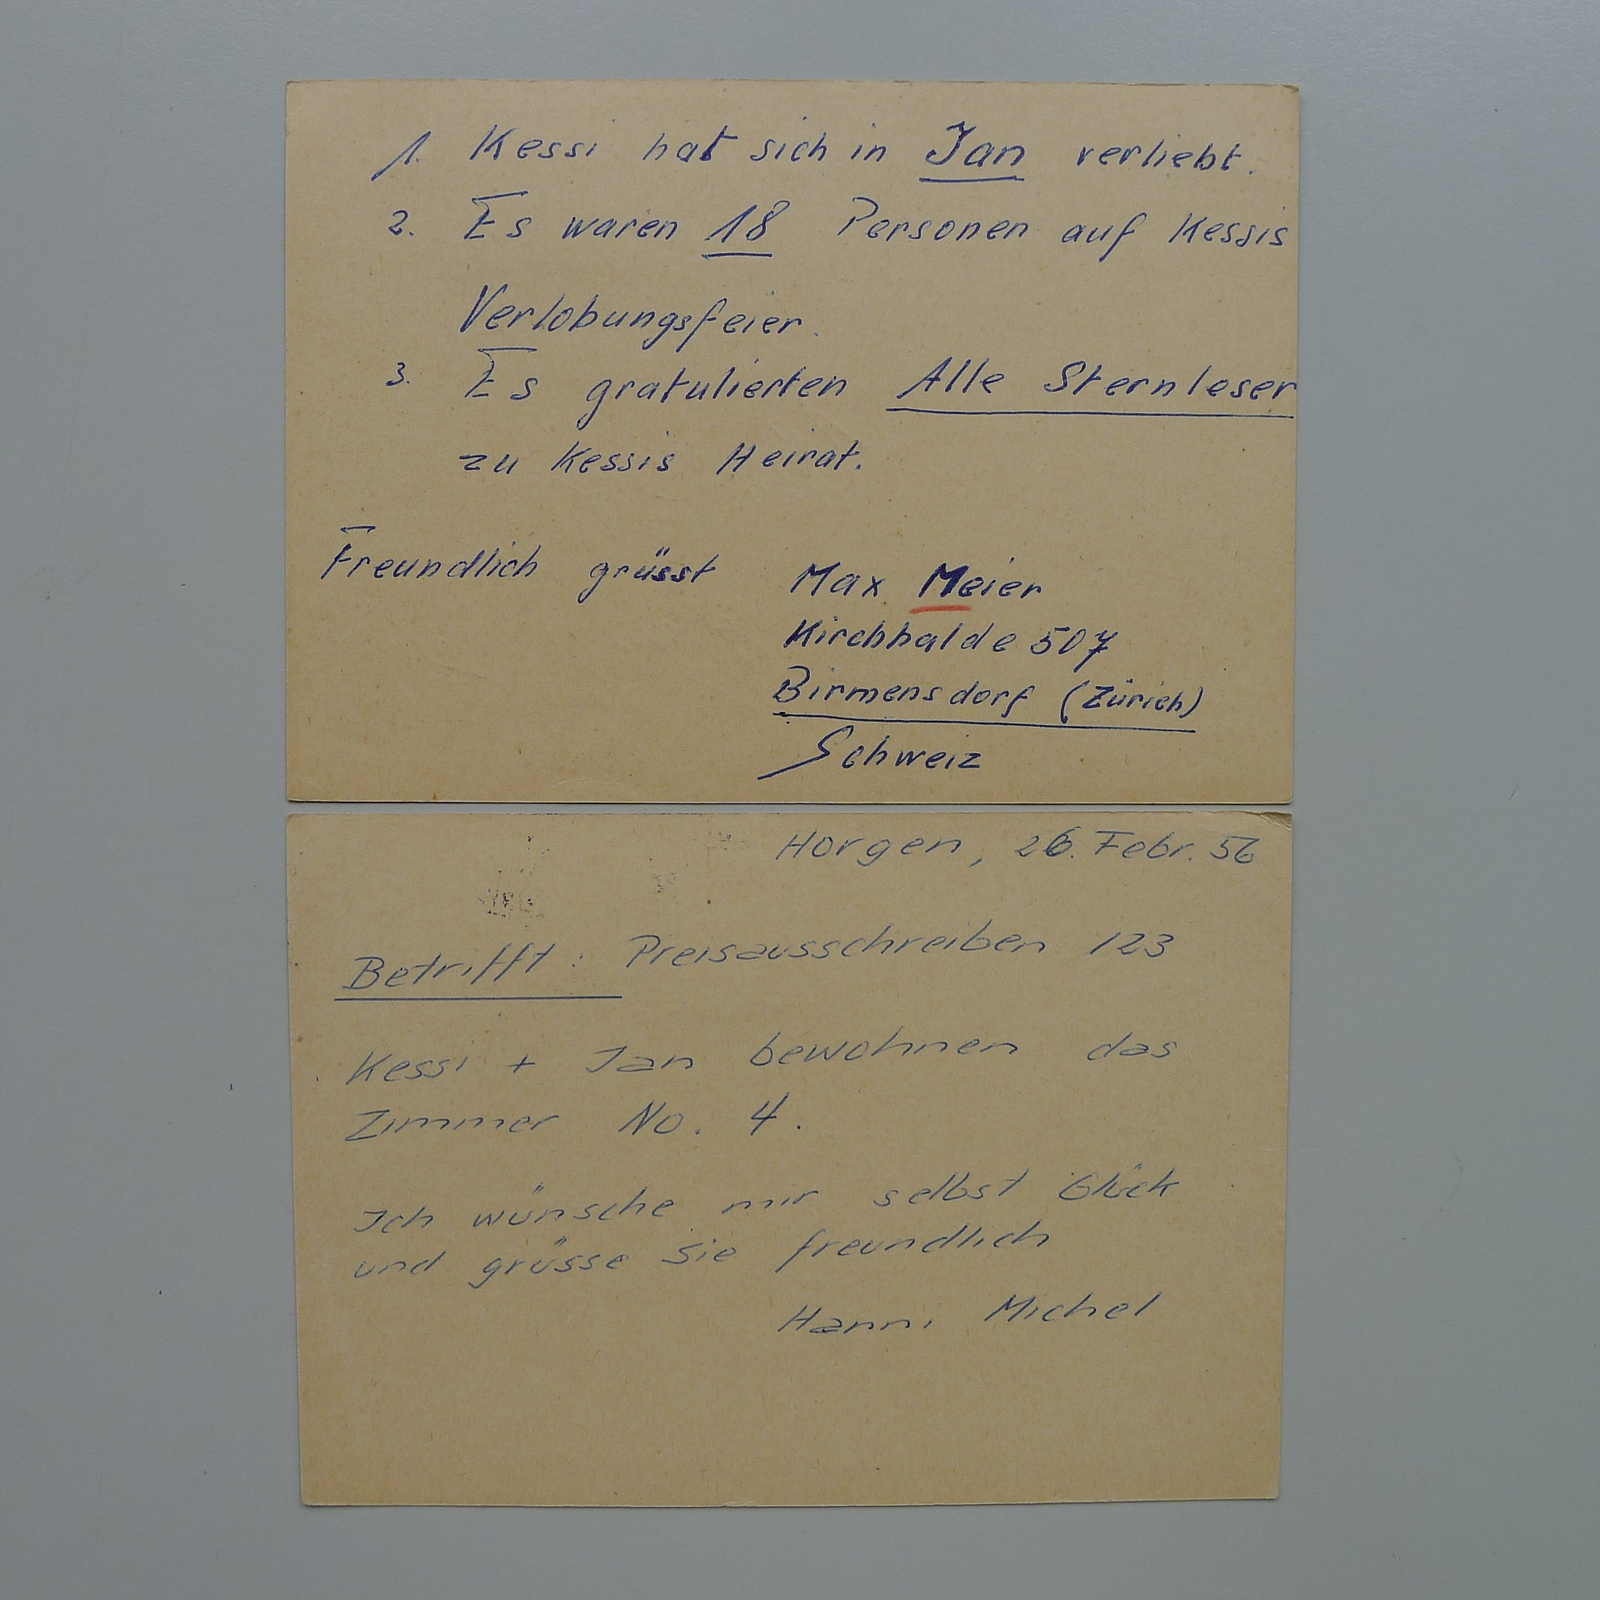 1. Kessi hat sich in Jan verliebt.
2. Es waren 18 Personen auf Kessis
Verlobungsfeier.
3. Es gratulierten Alle Sternleser
zu Kessis Heirat.
Freundlich grüsst Max Meier
Kirchhalde 507
Birmensdorf (Zürich)
Schweiz
Horgen, 26. Febr. 56
Betrifft: Preisausschreiben 123
Kessi + Jan bewohnen das
Zimmer No. 4.
Ich wünsche mir selbst Glück
und grüsse Sie freundlich
Hanni Michel